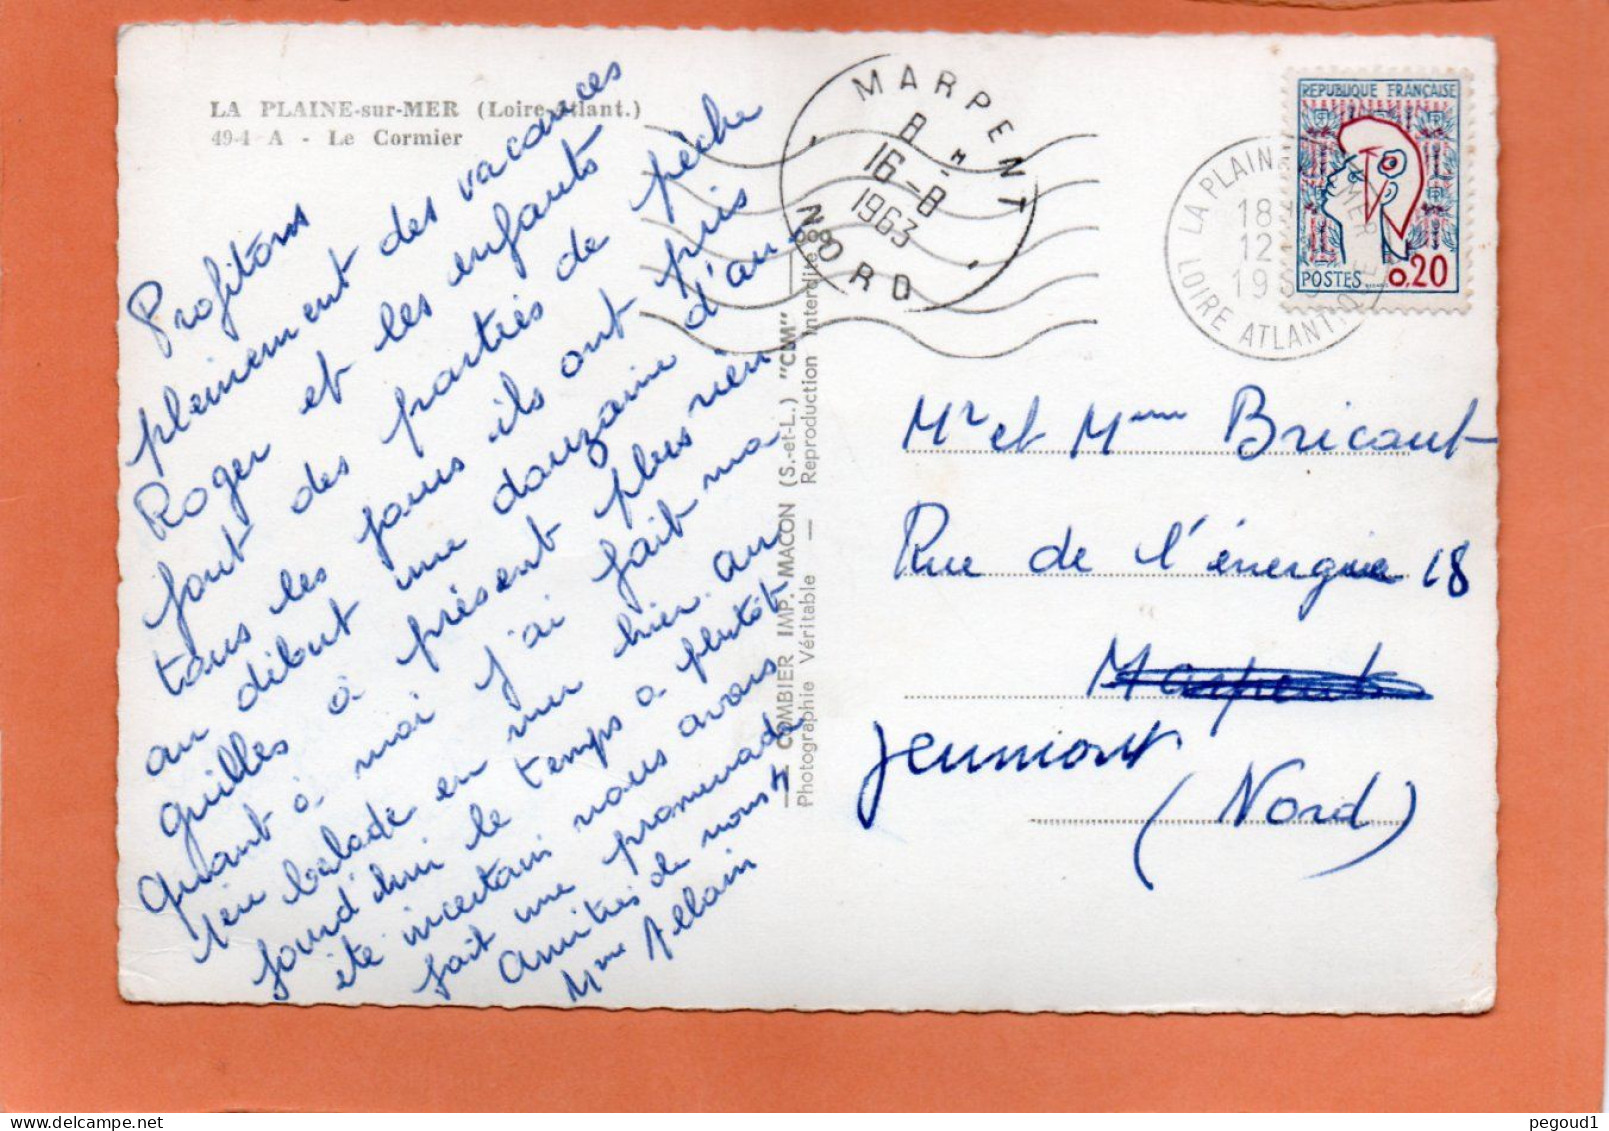 LA PLAINE-sur-MER (Loire-Atlant.)
49-4 A - Le Cormier
Profitons
pleinement des vacances
Roger et les enfants
font des parties de pêche
tous les jours ils ont pris
au début une douzaine d'an-
guilles à présent plus rien
quant à moi j'ai fait ma
1ère balade en mer hier. au
jourd'hui le temps a plutôt
été incertain nous avons
fait une promenade
Amitiés de nous 4
Mme Allain
COMBIER IMP. MACON (S.-et-L.) "CIM"
Photographie Véritable — Reproduction Interdite
MARPENT
8 H
16-8
1963
NORD
LA PLAINE MER
18
12
19
LOIRE ATLANTIQUE
REPUBLIQUE FRANÇAISE
POSTES
0,20
Mr et Mme Bricout
Rue de l'énergie 18
Marpent
Jeumont
(Nord)
pegoud1